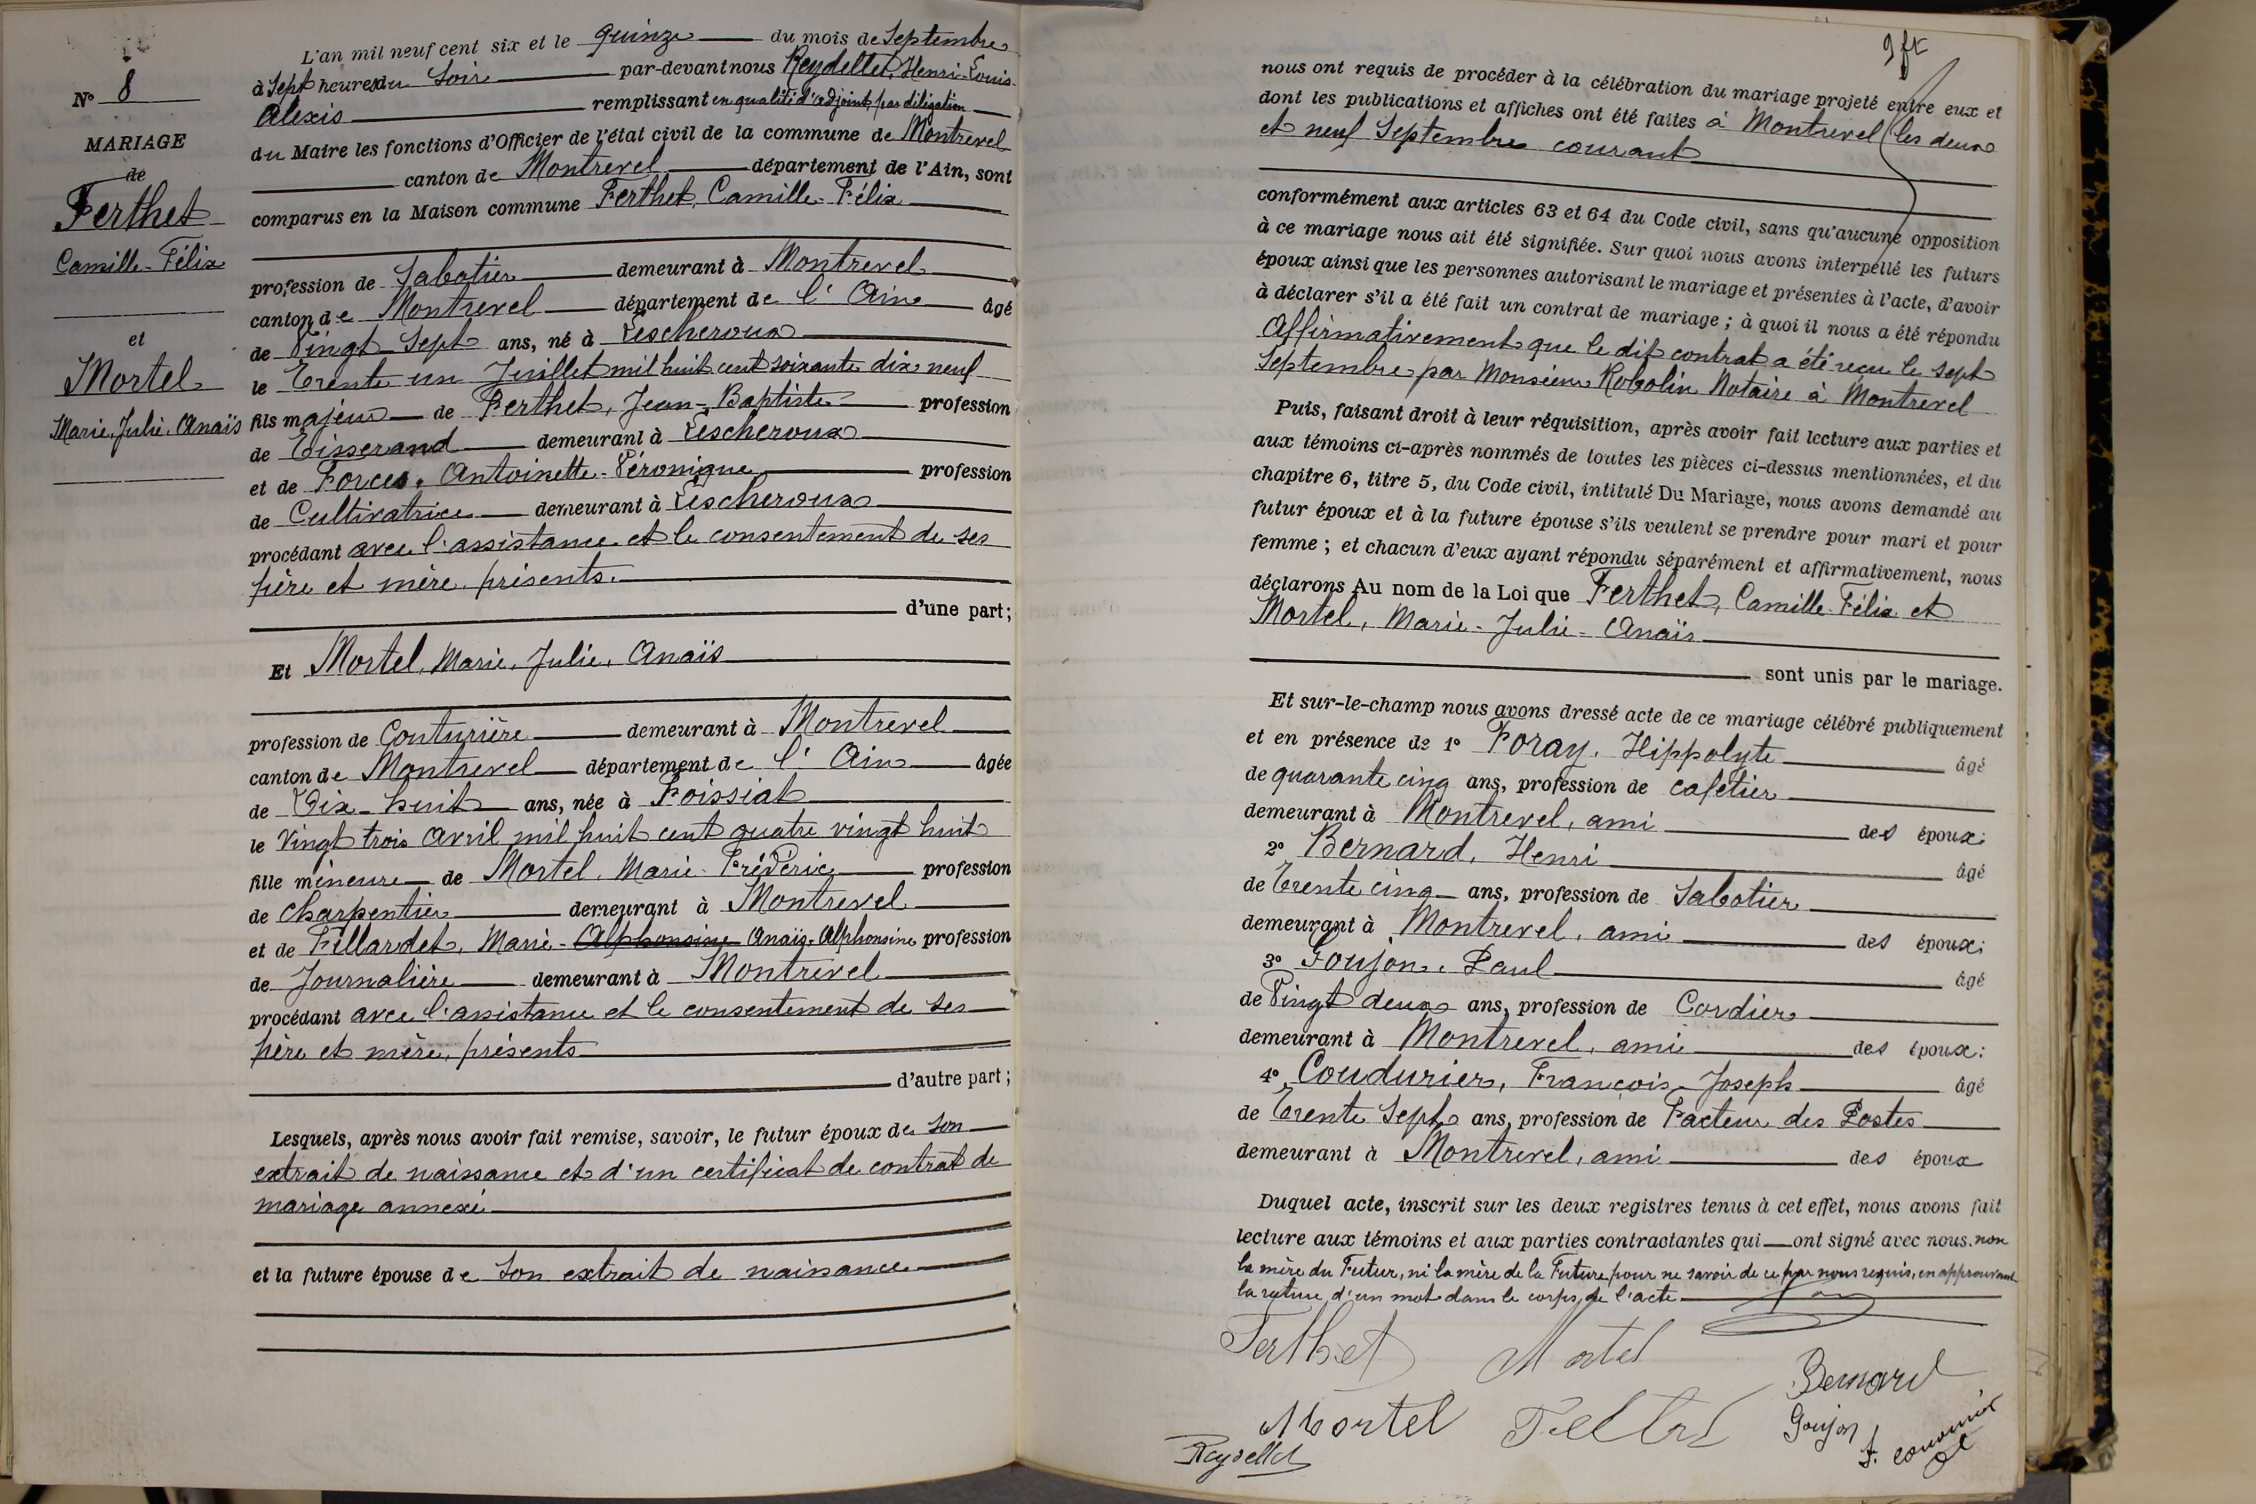 N° 8
MARIAGE
de
Ferthet
Camille-Félix
et
Mortel
Marie, Julie, Anaïs
L'an mil neuf cent six et le quinze du mois de Septembre
à Sept heures du Soir par-devant nous Reydellet, Henri-Louis-
Alexis remplissant en qualité d'adjoint, par délégation
du Maire les fonctions d'Officier de l'état civil de la commune de Montrevel
canton de Montrevel département de l'Ain, sont
comparus en la Maison commune Ferthet, Camille-Félix
profession de Sabotier demeurant à Montrevel
canton de Montrevel département de l'Ain âgé
de Vingt Sept ans, né à Lescheroux
le Trente un Juillet mil huit cent soixante dix neuf
fils majeur de Ferthet, Jean-Baptiste profession
de Tisserand demeurant à Lescheroux
et de Forces, Antoinette-Véronique profession
de Cultivatrice demeurant à Lescheroux
procédant avec l'assistance et le consentement de ses
père et mère présents.
d'une part;
Et Mortel, Marie, Julie, Anaïs
profession de Couturière demeurant à Montrevel
canton de Montrevel département de l'Ain âgée
de Dix-huit ans, née à Foissiat
le Vingt trois Avril mil huit cent quatre vingt huit
fille mineure de Mortel, Marie-Frédéric profession
de Charpentier demeurant à Montrevel
et de Fillardet, Marie-Alphonsine Anaïs-Alphonsine profession
de Journalière demeurant à Montrevel
procédant avec l'assistance et le consentement de ses
père et mère, présents
d'autre part;
Lesquels, après nous avoir fait remise, savoir, le futur époux de son
extrait de naissance et d'un certificat de contrat de
mariage annexé
et la future épouse de son extrait de naissance
nous ont requis de procéder à la célébration du mariage projeté entre eux et
dont les publications et affiches ont été faites à Montrevel les deux
et neuf Septembre courant
conformément aux articles 63 et 64 du Code civil, sans qu'aucune opposition
à ce mariage nous ait été signifiée. Sur quoi nous avons interpellé les futurs
époux ainsi que les personnes autorisant le mariage et présentes à l'acte, d'avoir
à déclarer s'il a été fait un contrat de mariage; à quoi il nous a été répondu
Affirmativement que le dit contrat a été reçu le sept
Septembre par Monsieur Robolin Notaire à Montrevel
Puis, faisant droit à leur réquisition, après avoir fait lecture aux parties et
aux témoins ci-après nommés de toutes les pièces ci-dessus mentionnées, et du
chapitre 6, titre 5, du Code civil, intitulé Du Mariage, nous avons demandé au
futur époux et à la future épouse s'ils veulent se prendre pour mari et pour
femme; et chacun d'eux ayant répondu séparément et affirmativement, nous
déclarons Au nom de la Loi que Ferthet, Camille-Félix et
Mortel, Marie-Julie-Anaïs
sont unis par le mariage.
Et sur-le-champ nous avons dressé acte de ce mariage célébré publiquement
et en présence de 1° Foray, Hippolyte âgé
de quarante cinq ans, profession de cafetier
demeurant à Montrevel, ami des époux;
2° Bernard, Henri âgé
de Trente cinq ans, profession de Sabotier
demeurant à Montrevel, ami des époux;
3° Goujon, Paul âgé
de Vingt deux ans, profession de Cordier
demeurant à Montrevel, ami des époux;
4° Coudurier, François-Joseph âgé
de Trente Sept ans, profession de Facteur des Postes
demeurant à Montrevel, ami des époux
Duquel acte, inscrit sur les deux registres tenus à cet effet, nous avons fait
lecture aux témoins et aux parties contractantes qui ont signé avec nous. non
la mère du Futur, ni la mère de la Future pour ne savoir de ce par nous requis, en approuvant
la rature d'un mot dans le corps de l'acte
Ferthet Mortel
Bernard
Mortel
Goujon
Reydellet